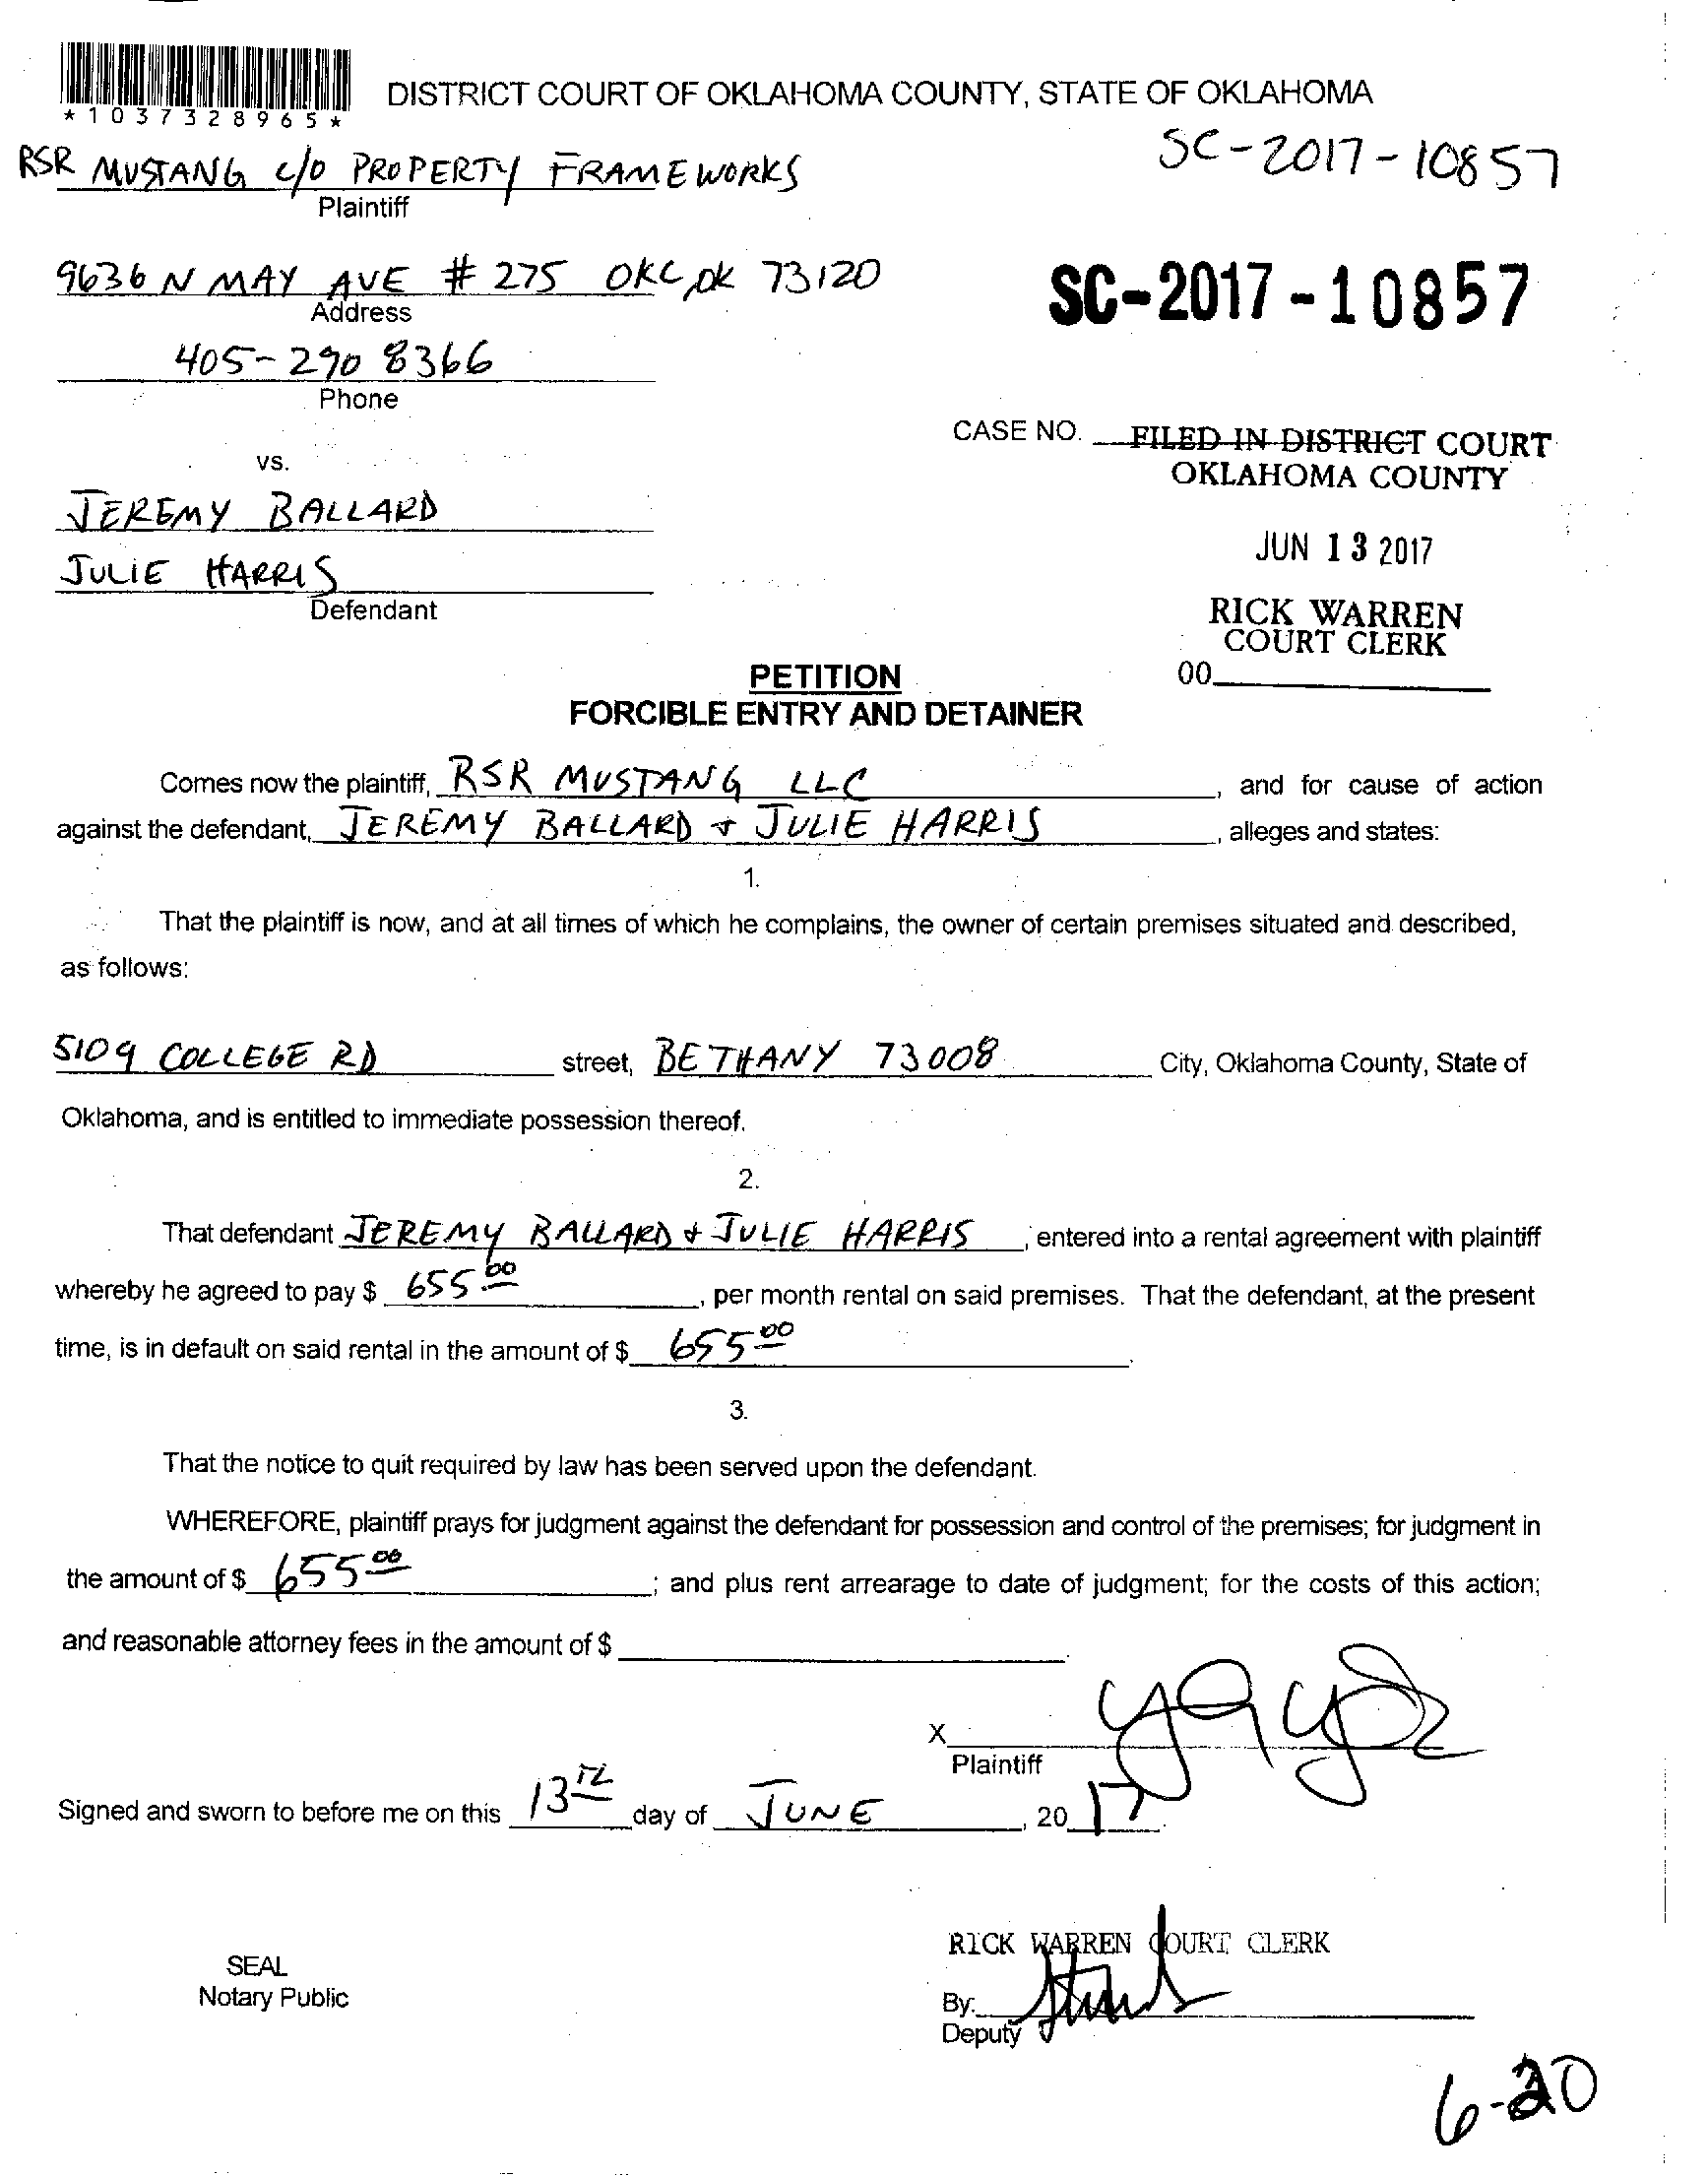 DISTRICT COURT OF OKLAHOMA COUNTY, STATE OF OKLAHOMA
*1037328965*
SC-2017-10857
RSR MUSTANG c/o PROPERTY FRAMEWORKS
Plaintiff
9636 N MAY AVE # 275 OKC, OK 73120
Address
SC-2017-10857
405-290 8366
Phone
CASE NO. FILED IN DISTRICT COURT
OKLAHOMA COUNTY
vs.
JEREMY BALLARD
JUN 13 2017
JULIE HARRIS
Defendant
RICK WARREN
COURT CLERK
00
PETITION
FORCIBLE ENTRY AND DETAINER
Comes now the plaintiff, RSR MUSTANG LLC, and for cause of action
against the defendant, JEREMY BALLARD + JULIE HARRIS, alleges and states:
1.
That the plaintiff is now, and at all times of which he complains, the owner of certain premises situated and described,
as follows:
5109 COLLEGE RD street, BETHANY 73008 City, Oklahoma County, State of
Oklahoma, and is entitled to immediate possession thereof.
2.
That defendant JEREMY BALLARD + JULIE HARRIS, entered into a rental agreement with plaintiff
whereby he agreed to pay $ 655.00, per month rental on said premises. That the defendant, at the present
time, is in default on said rental in the amount of $ 655.00.
3.
That the notice to quit required by law has been served upon the defendant.
WHEREFORE, plaintiff prays for judgment against the defendant for possession and control of the premises; for judgment in
the amount of $ 655.00; and plus rent arrearage to date of judgment; for the costs of this action;
and reasonable attorney fees in the amount of $
X
Plaintiff
Signed and sworn to before me on this 13th day of JUNE, 2017.
RICK WARREN COURT CLERK
SEAL
Notary Public
By:
Deputy
6-20